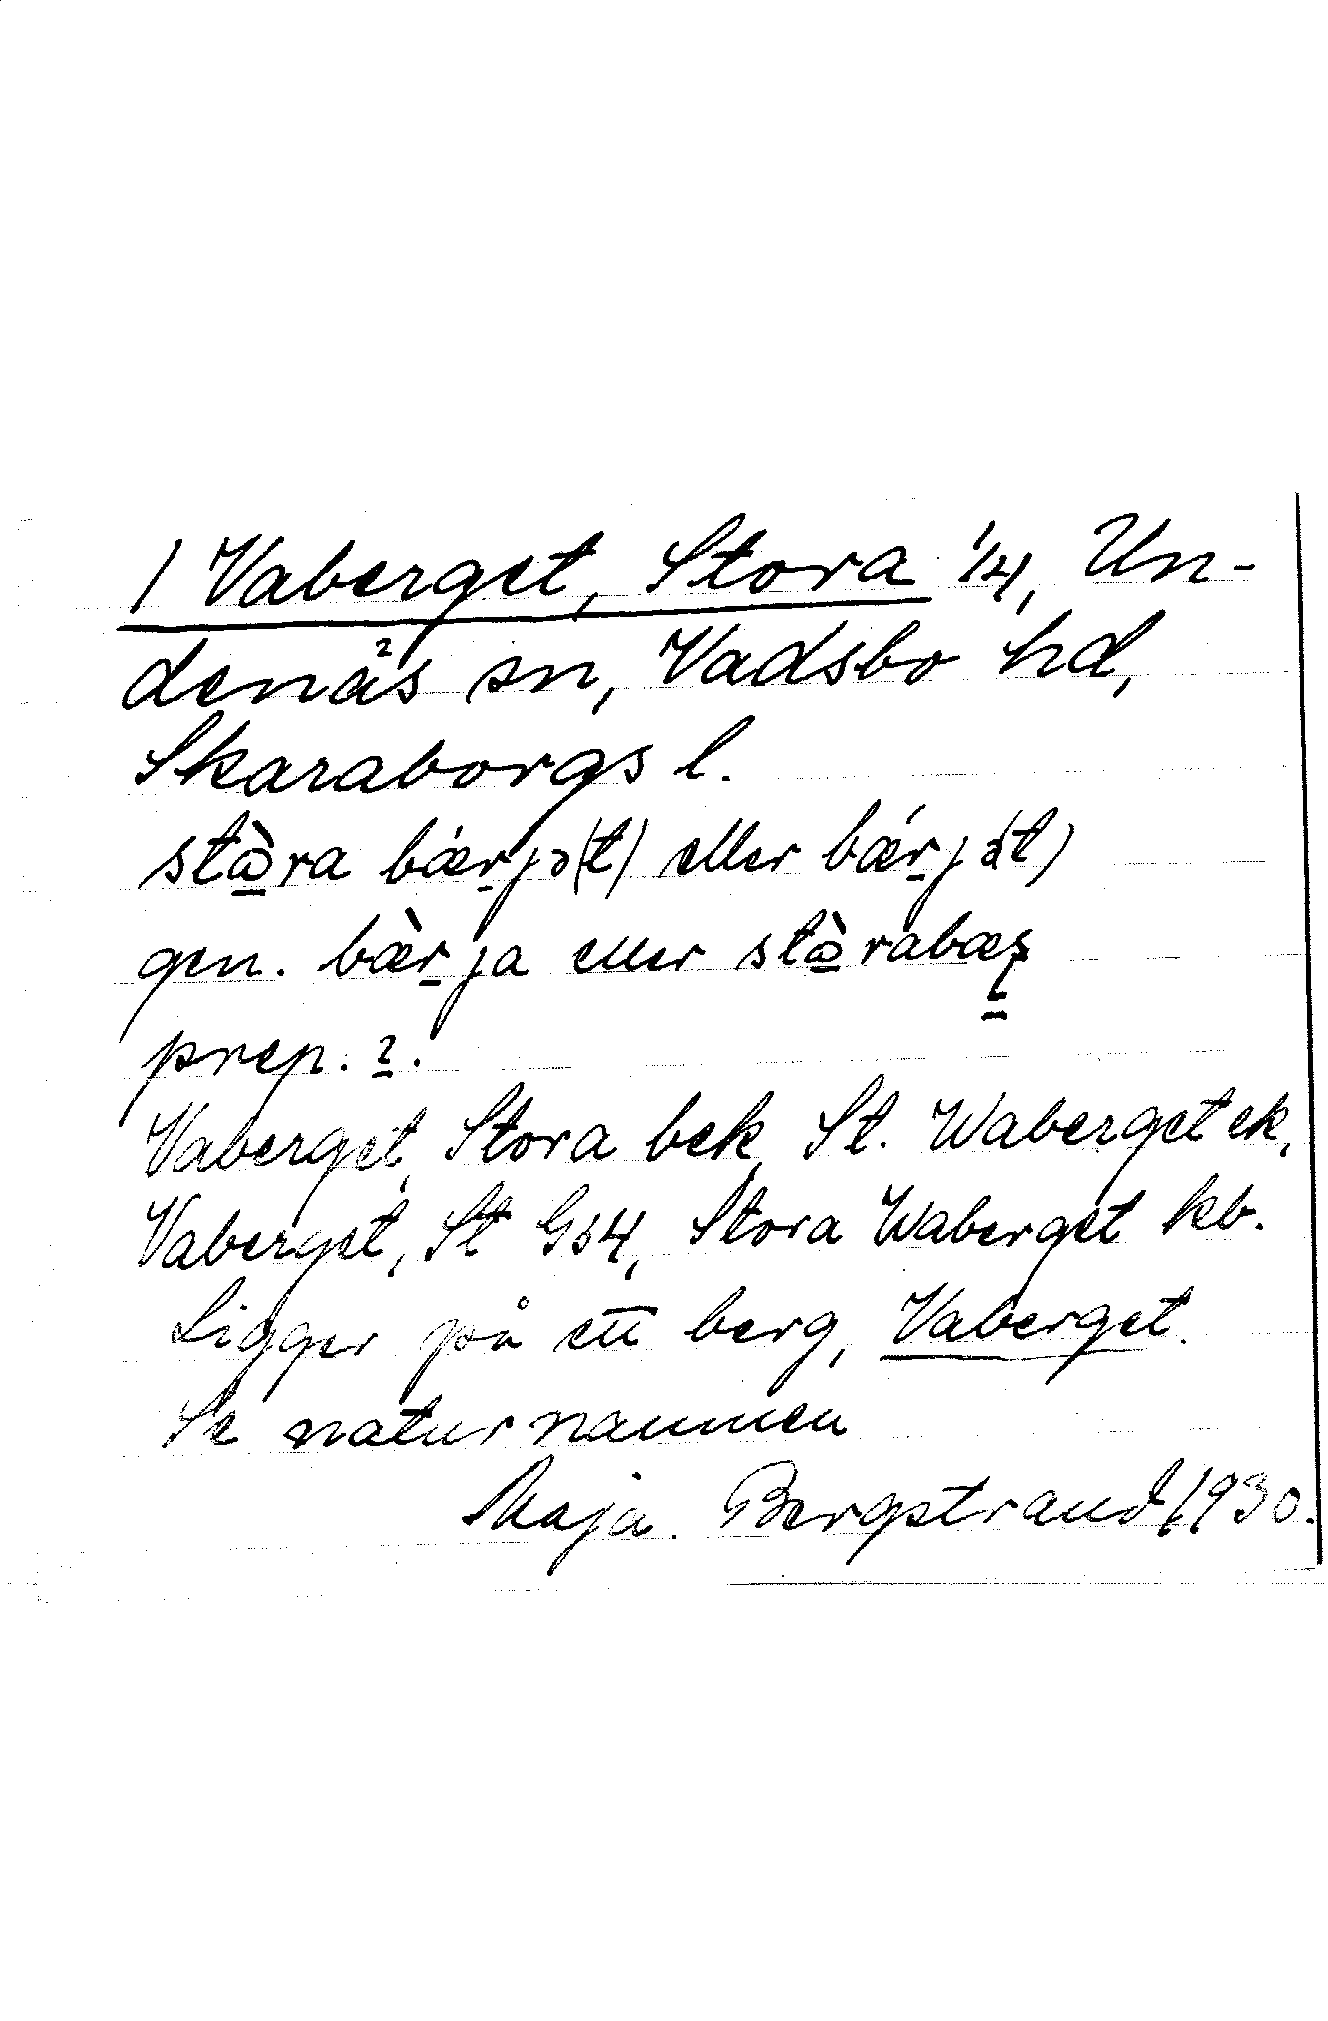 1 Vaberget, Stora 1/4, Un-
denäs sn, Vadsbo hd,
Skaraborgs l.
stò̱ra bǽṟjə(t) eller bǽṟjə(t)
gen. bæṟ̀ja eller stò̱rabæṟs̱
prep. ?.
Vaberget, Stora bek, St. Waberget ek,
Vaberget, St Gs4, Stora Waberget kb.
Ligger på ett berg, Vaberget.
Se naturnamnen
Maja Bergstrand 1930.